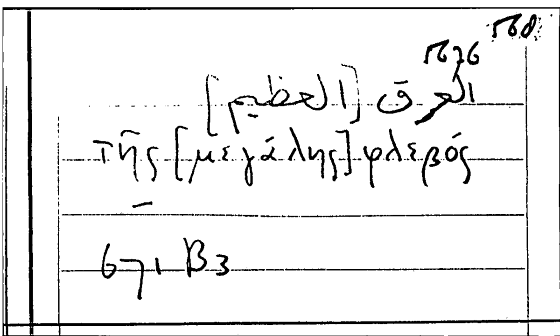 العرق [العظيم]
τῆς [μεγάλης] φλεβός
671 B 3